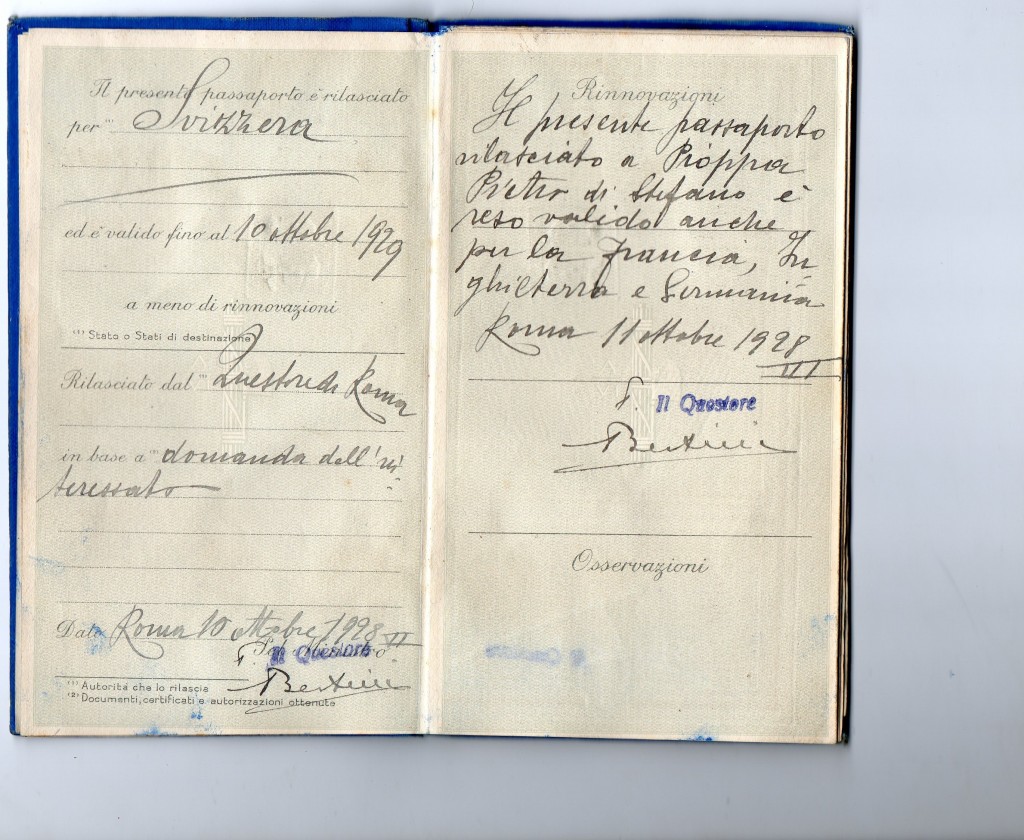 Il presente passaporto è rilasciato
per (1) Svizzera
ed è valido fino al 10 ottobre 1929
a meno di rinnovazioni
(1) Stato o Stati di destinazione
Rilasciato dal (1) Questore di Roma
in base a (2) domanda dell'in=
teressato
Data Roma 10 ottobre 1928 VI
P. Il Questore
Bertini
(1) Autorità che lo rilascia
(2) Documenti, certificati e autorizzazioni ottenute
Rinnovazioni
Il presente passaporto
rilasciato a Pioppa
Pietro di Stefano è
reso valido anche
per la Francia, In
ghilterra e Germania
Roma 11 ottobre 1928
VI
P. Il Questore
Bertini
Osservazioni